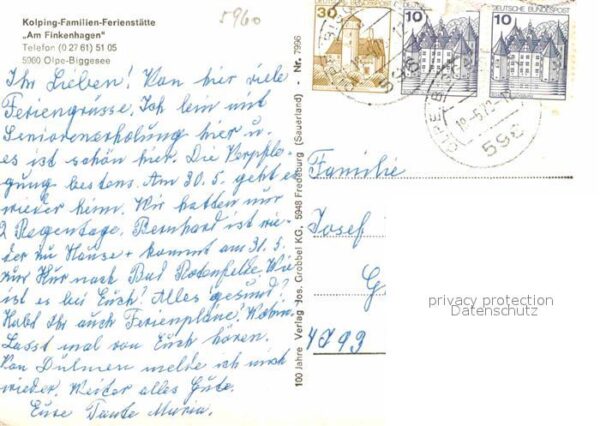 5960
Kolping-Familien-Ferienstätte
„Am Finkenhagen"
Telefon (0 27 61) 51 05
5960 Olpe-Biggesee
Ihr Lieben! Von hier viele
Feriengrüsse. Ich bin mit
Seniorenerholung hier u.
es ist schön hier. Die Verpfle-
gung bestens. Am 30.5. geht es
wieder heim. Wir hatten nur
2 Regentage. Bernhard ist wie-
der zu Hause + kommt am 31.5.
zur Kur nach Bad Rotenfelde. Wie
ist es bei Euch? Alles gesund?
Habt Ihr auch Ferienpläne? Wohin.
Lasst mal von Euch hören.
Von Dülmen melde ich mich
wieder. Weiter alles Gute.
Eure Tante Maria.
100 Jahre Verlag Jos. Grobbel KG, 5948 Fredeburg (Sauerland) - Nr. 7996
30
DEUTSCHE BUNDESPOST
10
DEUTSCHE BUNDESPOST
10
DEUTSCHE BUNDESPOST
596
596
Familie
Josef
G
4793
privacy protection
Datenschutz